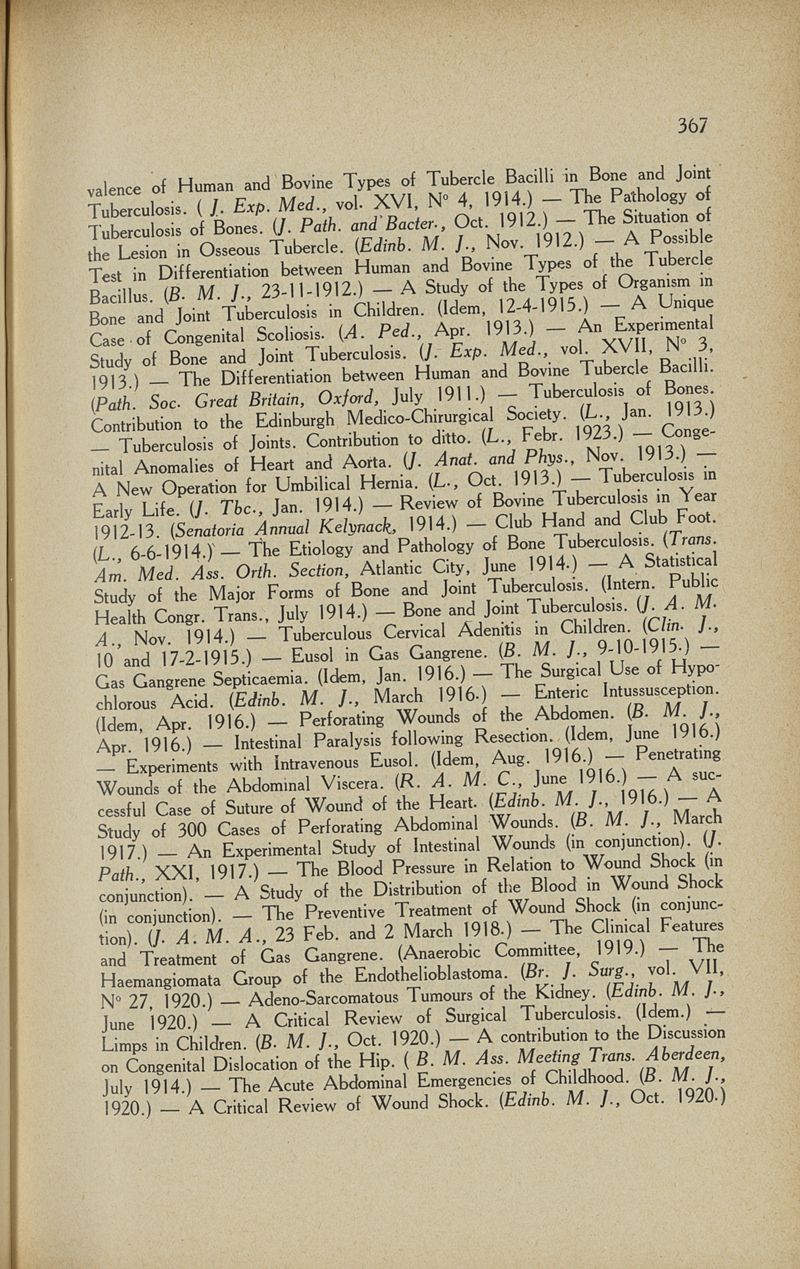 367
valence of Human and Bovine Types of Tubercle Bacilli in Bone and Joint
Tuberculosis. ( J. Exp. Med., vol. XVI, N° 4, 1914.) — The Pathology of
Tuberculosis of Bones. (J. Path. and Bacter., Oct. 1912.) — The Situation of
the Lesion in Osseous Tubercle. (Edinb. M. J., Nov. 1912.) — A Possible
Test in Differentiation between Human and Bovine Types of the Tubercle
Bacillus. (B. M. J., 23-11-1912.) — A Study of the Types of Organism in
Bone and Joint Tuberculosis in Children. (Idem, 12-4-1915.) — A Unique
Case of Congenital Scoliosis. (A. Ped., Apr. 1913.) — An Experimental
Study of Bone and Joint Tuberculosis. (J. Exp. Med., vol. XVII, N° 3,
1913.) — The Differentiation between Human and Bovine Tubercle Bacilli.
(Path. Soc. Great Britain, Oxford, July 1911.) — Tuberculosis of Bones.
Contribution to the Edinburgh Medico-Chirurgical Society. (L., Jan. 1913.)
— Tuberculosis of Joints. Contribution to ditto. (L., Febr. 1923.) — Conge-
nital Anomalies of Heart and Aorta. (J. Anat. and Phys., Nov. 1913.) —
A New Operation for Umbilical Hernia. (L., Oct. 1913.) — Tuberculosis in
Early Life. (J. Tbc., Jan. 1914.) — Review of Bovine Tuberculosis in Year
1912-13. (Senatoria Annual Kelynack, 1914.) — Club Hand and Club Foot.
(L., 6-6-1914.) — The Etiology and Pathology of Bone Tuberculosis. (Trans.
Am. Med. Ass. Orth. Section, Atlantic City, June 1914.) — A Statistical
Study of the Major Forms of Bone and Joint Tuberculosis. (Intern. Public
Health Congr. Trans., July 1914.) — Bone and Joint Tuberculosis. (J. A. M.
A., Nov. 1914.) — Tuberculous Cervical Adenitis in Children. (Clin. J.,
10 and 17-2-1915.) — Eusol in Gas Gangrene. (B. M. J., 9-10-1915.) —
Gas Gangrene Septicaemia. (Idem, Jan. 1916.) — The Surgical Use of Hypo-
chlorous Acid. (Edinb. M. J., March 1916.) — Enteric Intussusception.
(Idem, Apr. 1916.) — Perforating Wounds of the Abdomen. (B. M. J.,
Apr. 1916.) — Intestinal Paralysis following Resection. (Idem, June 1916.)
— Experiments with Intravenous Eusol. (Idem, Aug. 1916.) — Penetrating
Wounds of the Abdominal Viscera. (R. A. M. C., June 1916.) — A suc-
cessful Case of Suture of Wound of the Heart. (Edinb. M. J., 1916.) — A
Study of 300 Cases of Perforating Abdominal Wounds. (B. M. J., March
1917.) — An Experimental Study of Intestinal Wounds (in conjunction). (J.
Path., XXI, 1917.) — The Blood Pressure in Relation to Wound Shock (in
conjunction). — A Study of the Distribution of the Blood in Wound Shock
(in conjunction). — The Preventive Treatment of Wound Shock (in conjunc-
tion). (J. A. M. A., 23 Feb. and 2 March 1918.) — The Clinical Features
and Treatment of Gas Gangrene. (Anaerobic Committee, 1919.) — The
Haemangiomata Group of the Endothelioblastoma. (Br. J. Surg., vol. VII,
N° 27, 1920.) — Adeno-Sarcomatous Tumours of the Kidney. (Edinb. M. J.,
June 1920.) — A Critical Review of Surgical Tuberculosis. (Idem.) —
Limps in Children. (B. M. J., Oct. 1920.) — A contribution to the Discussion
on Congenital Dislocation of the Hip. ( B. M. Ass. Meeting Trans. Aberdeen,
July 1914.) — The Acute Abdominal Emergencies of Childhood. (B. M. J.,
1920.) — A Critical Review of Wound Shock. (Edinb. M. J., Oct. 1920.)